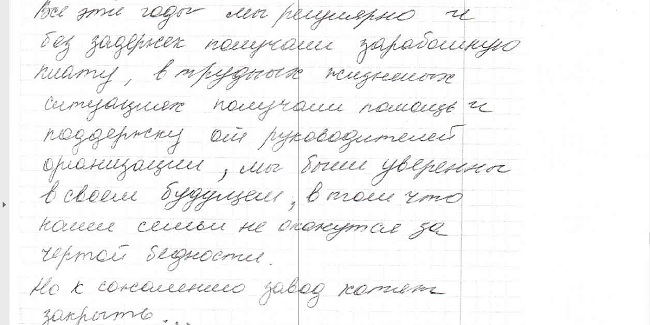 Все эти годы мы регулярно и
без задержек получали заработную
плату, в трудных жизненых
ситуациях получали помощь и
поддержку от руководителей
организации, мы были уверенны
в своем будущем, в том что
наши семьи не окажутся за
чертой бедности.
Но к сожалению завод хотят
закрыть...